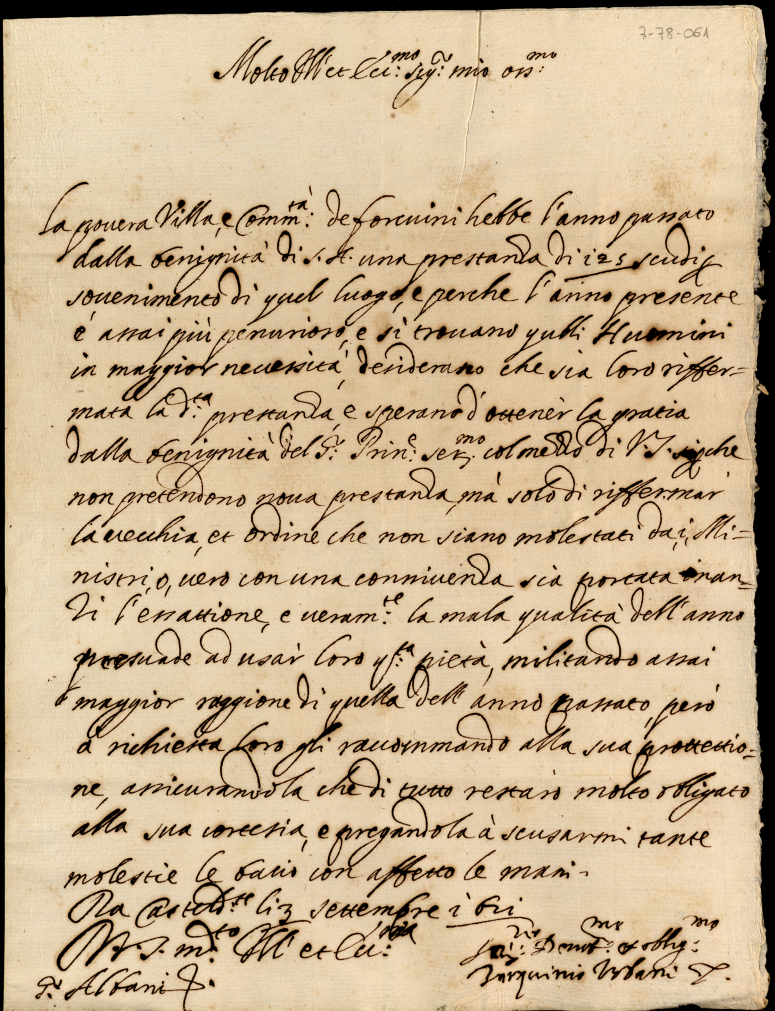 7-78-061
Molto Ill.et Ecc:mo sigr: mio oss:mo
La pouera Villa, e Comm:tà de forcuini hebbe l'anno passato
dalla benignità di s.A. una prestanza di 125 scudi p
souenimento di quel luogo, e perche l'anno presente
è assai più penurioso, e si trouano quelli Huomini
in maggior necessità, desiderano che sia loro riffer=
mata la d:ta prestanza, e sperano d'ottener la gratia
dalla benignità del Sr: Prine ser:mo col mezzo di V.S. sich che
non pretendono noua prestanza, mà solo di riffermar
la vecchia, et ordine che non siano molestati da i, Mi=
nistri, o, uero con una conniuenza sia portata inan=
zi l'essattione, e ueram:te la mala qualità dell'anno
persuade ad usar loro qs:ta pietà, militando assai
maggior raggione di quella dell'anno passato, però
à richiesta loro gli raccommando alla sua prottettio=
ne, assicurandola che di tutto restarò molto obligato
alla sua cortesia, e pregandola à scusarmi tante
molestie le bacio con affetto le mani.
Da Casteld:te li 3 settembre 1611
Di V.S. m:to Ill.et Ecc:
Ser:re Deuot:mo et oblig:mo
Sr Albani
Tarquinio Urbani